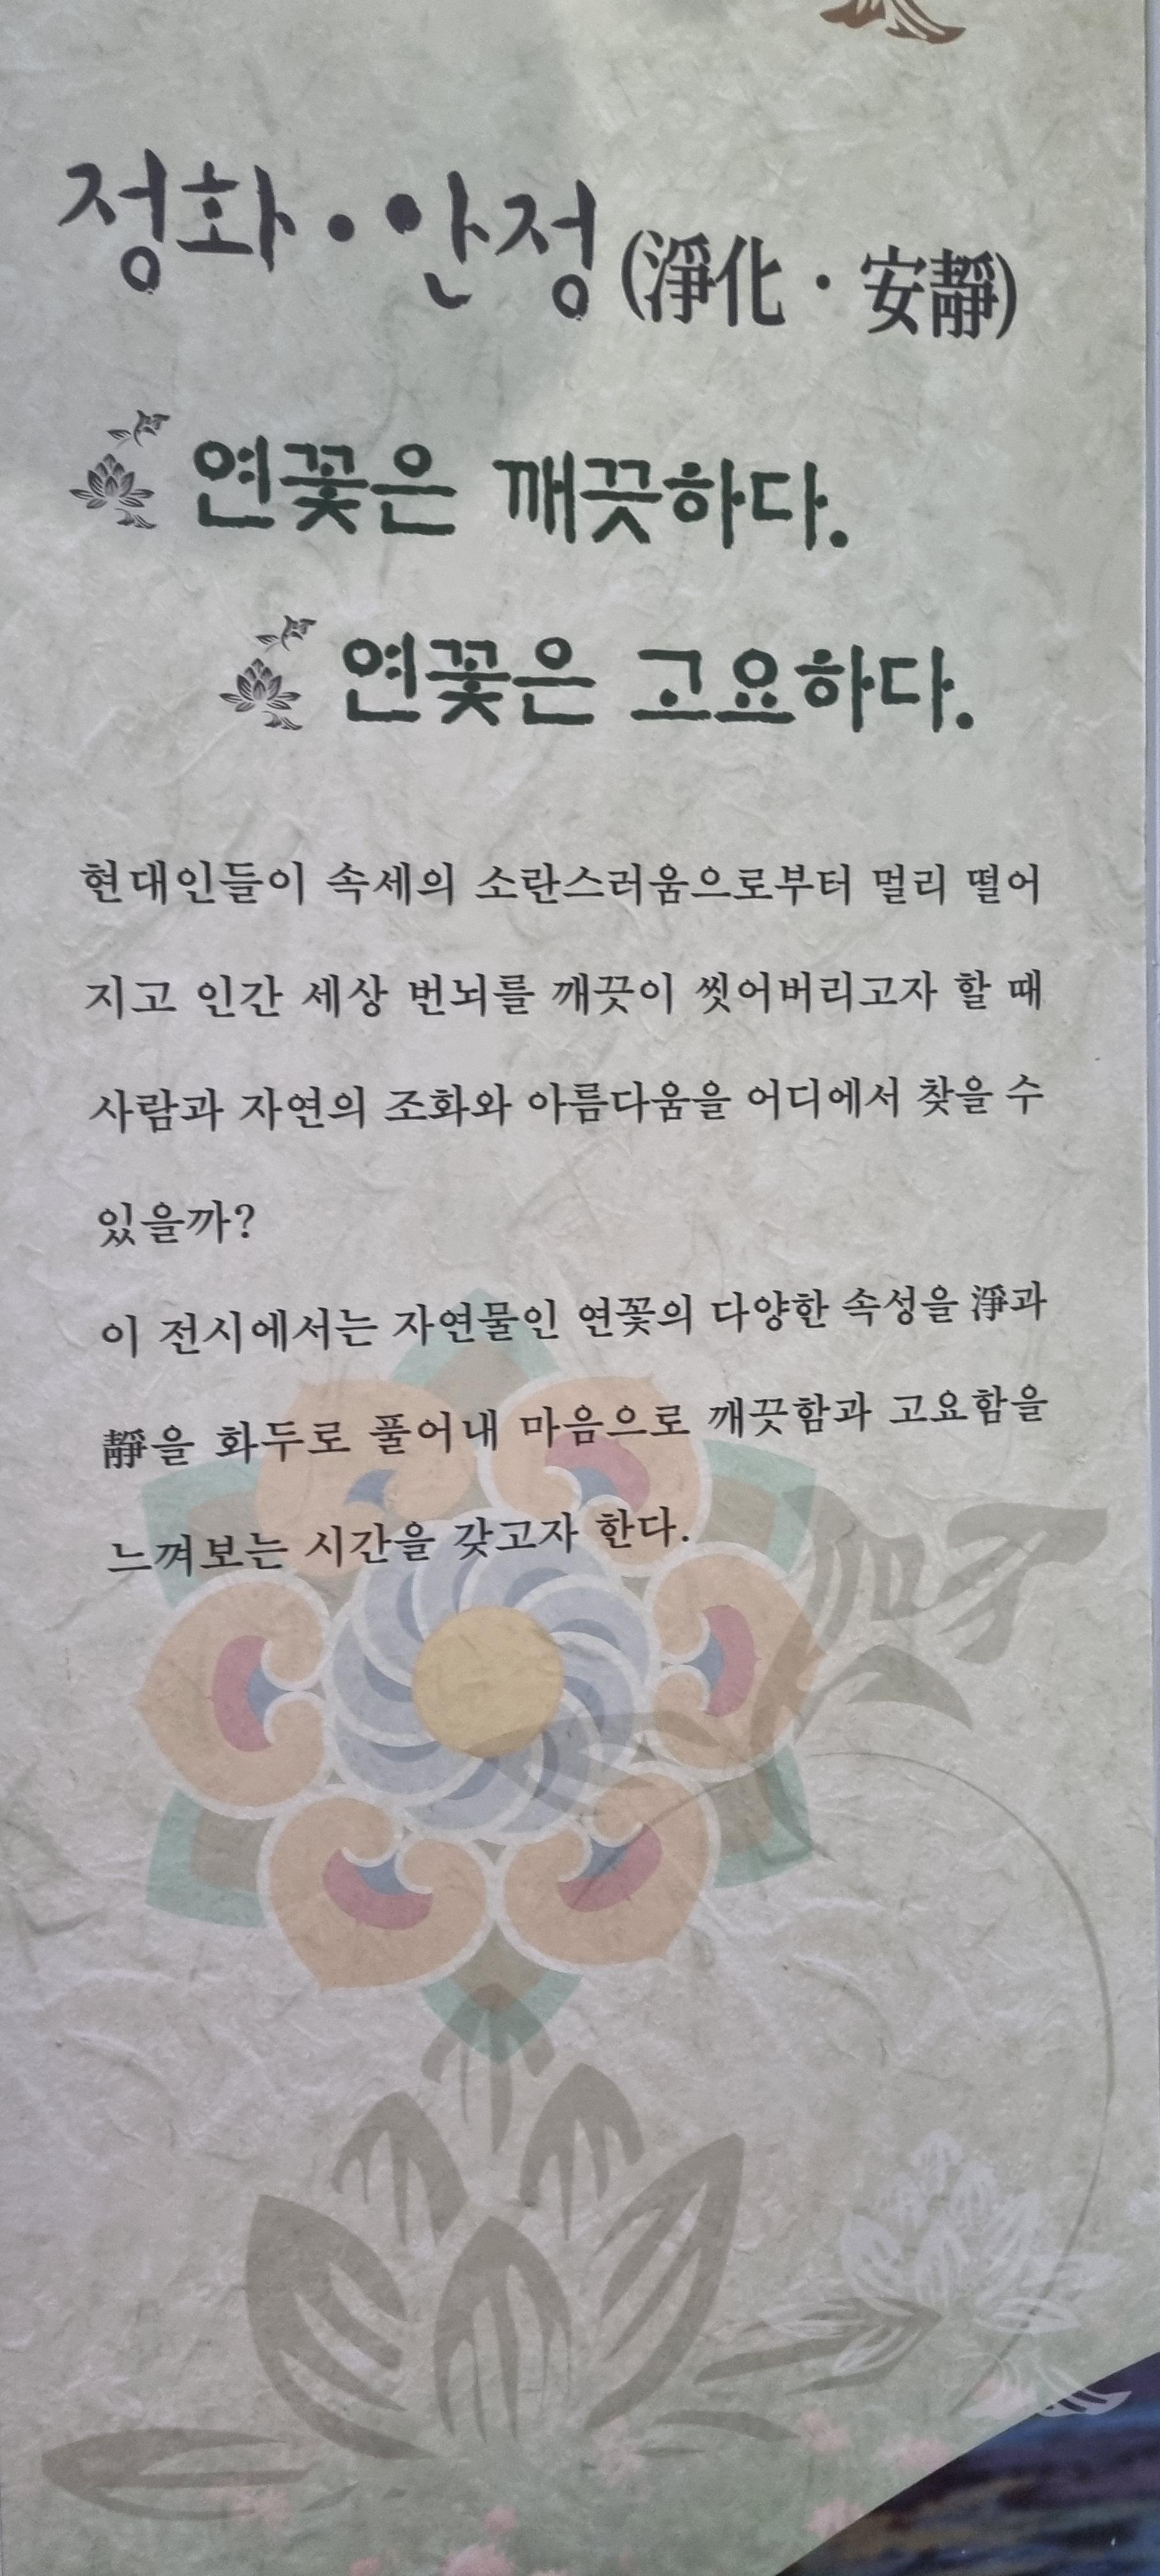 정화·안정(淨化·安靜)
연꽃은 깨끗하다.
연꽃은 고요하다.
현대인들이 속세의 소란스러움으로부터 멀리 떨어
지고 인간 세상 번뇌를 깨끗이 씻어버리고자 할 때
사람과 자연의 조화와 아름다움을 어디에서 찾을 수
있을까?
이 전시에서는 자연물인 연꽃의 다양한 속성을 淨과
靜을 화두로 풀어내 마음으로 깨끗함과 고요함을
느껴보는 시간을 갖고자 한다.